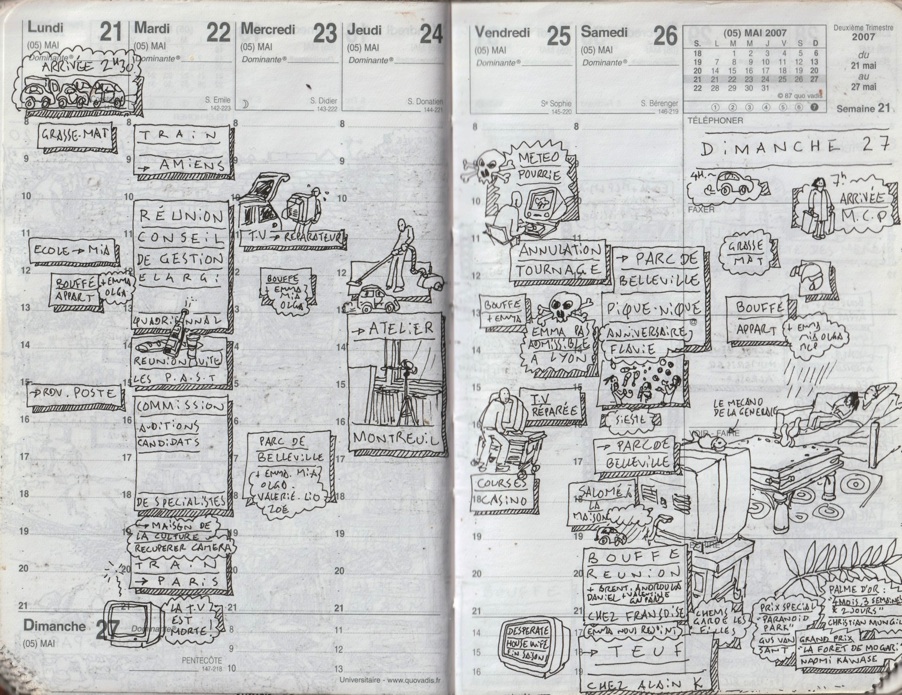 Lundi 21
(05) MAI
Dominante
ARRIVÉE 2H30
8
GRASSE-MAT
9
10
ECOLE → MIA
11
12
BOUFFE
APPART
+ EMMA
OLGA
13
14
15
→ RDV. POSTE
16
17
18
19
20
21
Dimanche 27
(05) MAI
Mardi 22
(05) MAI
Dominante
S. Emile
142-223
TRAIN
→ AMIENS
RÉUNION
CONSEIL
DE GESTION
ELARGI
QUADRIENNAL
REUNION SUITE
LES P.A.S.T
COMMISSION
AUDITIONS
CANDIDATS
DE SPECIALISTES
→ MAISON DE
LA CULTURE
RECUPERER CAMERA
TRAIN
→ PARIS
LA T.V
EST
MORTE!
PENTECÔTE
147-218
Mercredi 23
(05) MAI
Dominante
S. Didier
143-222
T.V → RÉPARATEUR
BOUFFE
+ EMMA
MIA
OLGA
PARC DE
BELLEVILLE
+ EMMA. MIA
OLGA
VALERIE-LIO
ZOÉ
Jeudi 24
(05) MAI
Dominante
S. Donatien
144-221
→ ATELIER
MONTREUIL
Universitaire - www.quovadis.fr
Vendredi 25
(05) MAI
Dominante
Ste Sophie
145-220
METEO
POURRIE
ANNULATION
TOURNAGE
BOUFFE
+ EMMA
EMMA PAS
ADMISSIBLE
À LYON
T.V
RÉPARÉE
COURSES
CASINO
DESPERATE
HOUSEWIFES
Samedi 26
(05) MAI
Dominante
S. Bérenger
146-219
→ PARC DE
BELLEVILLE
PIQUE-NIQUE
ANNIVERSAIRE
FLAVIE
SIESTE
→ PARC DE
BELLEVILLE
SALOMÉ À
LA
MAISON
BOUFFE
REUNION
CHEZ FRANÇOISE
→ TEUF
CHEZ ALAIN K
CHEMS
GARDE LES
FILLES
(05) MAI 2007
S. L M M J V S D
18 1 2 3 4 5 6
19 7 8 9 10 11 12 13
20 14 15 16 17 18 19 20
21 21 22 23 24 25 26 27
22 28 29 30 31
© 87 quo vadis
1 2 3 4 5 6 7
Deuxième Trimestre
2007
du
21 mai
au
27 mai
Semaine 21
TÉLÉPHONER
DIMANCHE 27
4H
FAXER
7h
ARRIVÉE
M.C.P
GRASSE
MAT
BOUFFE
APPART
+ EMMA
MIA OLGA
MCP
LE MECANO
DE LA GENERALE
VOIR - FAIRE
PALME D'OR:
"4 MOIS, 3 SEMAINES
& 2 JOURS"
CHRISTIAN MUNGIU
PRIX SPECIAL
"PARANOID
PARK"
GUS VAN
SANT
GRAND PRIX
"LA FORET DE MOGARI"
NAOMI KAWASE